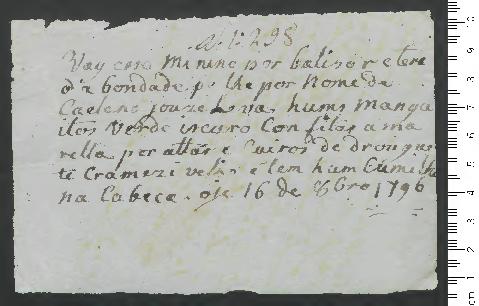 N. 1:298
Vay esse Menino por batizar e tera
a bondade p. lhe por Nome de
Caeleno Jouze Leva huns mangu
itos Verde iscuro Con fitas a ma
rella por attar e Cueiros de drongue
te Cramezi velho e tem hum Cumilho
na Cabeca. oje 16 de 8bro 1796
cm 1 2 3 4 5 6 7 8 9 10